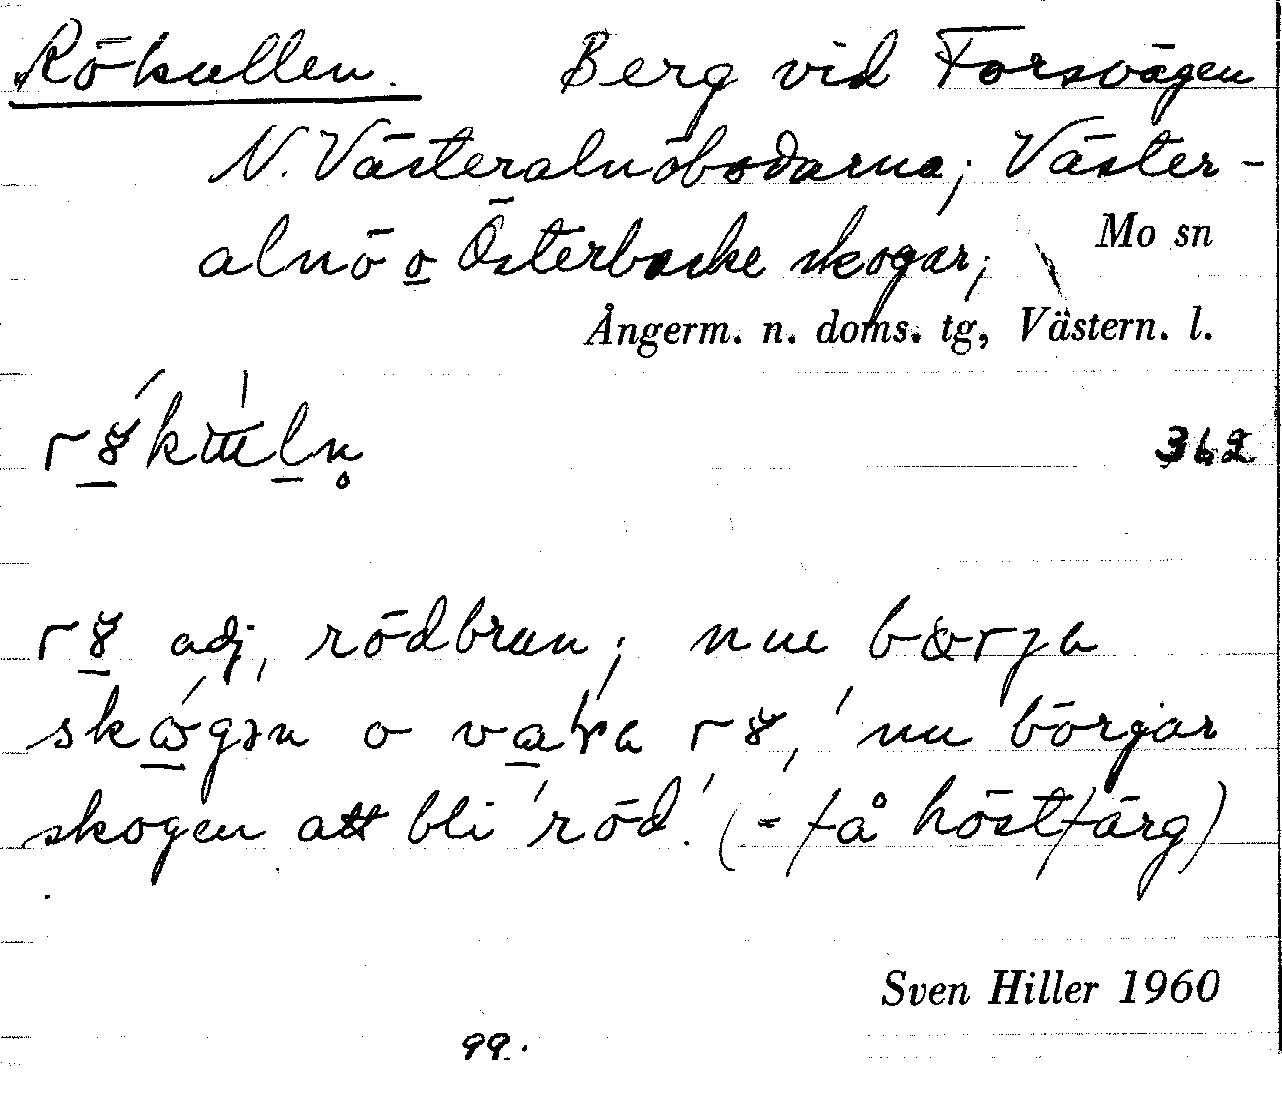 Rökullen. Berg vid Forsvägen
N. Västeralnöbodarna; Väster-
alnö o Österbacke skogar;
Mo sn
Ångerm. n. doms. tg, Västern. l.
362
adj, rödbrun; nue
o, 'nu börjar
skogen att bli 'röd'. (= få höstfärg)
Sven Hiller 1960
99.